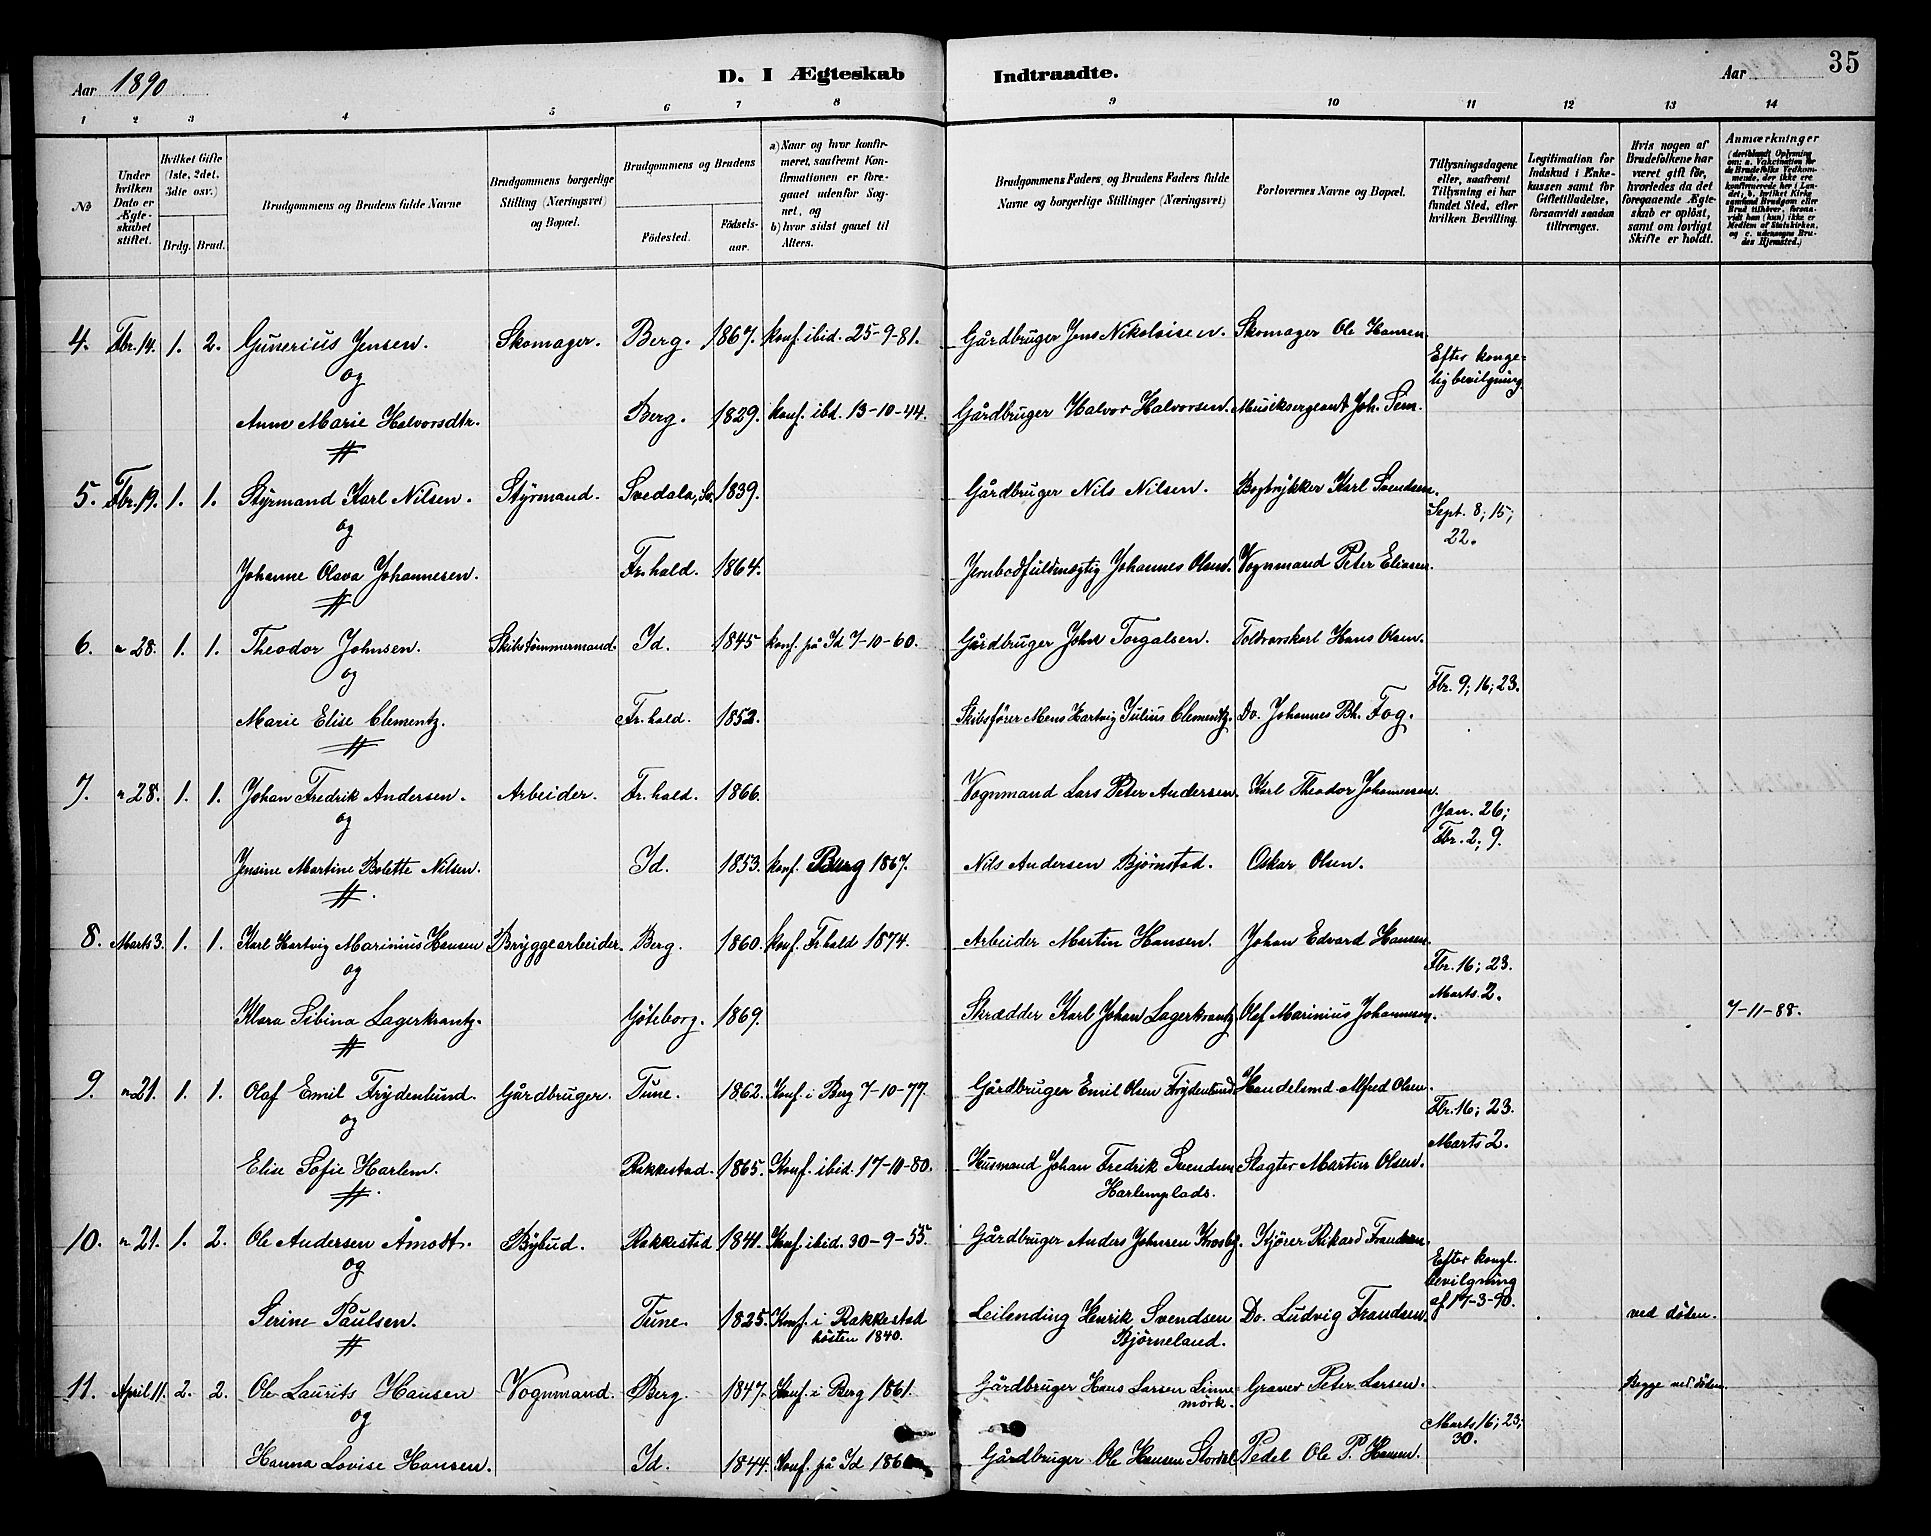 Aar 1890
D. I Ægteskab Indtraadte.
Aar
35
1 2 3 4 5 6 7 8 9 10 11 12 13 14
№
Under hvilken Dato er Ægteskabet stiftet.
Hvilket Gifte (1ste, 2det, 3die osv.)
Brdg. Brud.
Brudgommens og Brudens fulde Navne
Brudgommens borgerlige Stilling (Næringsvei) og Bopæl.
Brudgommens og Brudens
Födested.
Födsels-aar.
a) Naar og hvor konfirmeret, saafremt Konfirmationen er foregaaet udenför Sognet, og
b) hvor sidst gaaet til Alters.
Brudgommens Faders, og Brudens Faders fulde Navne og borgerlige Stillinger (Næringsvei)
Forlovernes Navne og Bopæl.
Tillysningsdagene eller, saafremt Tillysning ei har fundet Sted, efter hvilken Bevilling.
Legitimation for Indskud i Enkekassen samt for Giftetilladelse, forsaavidt saadan tiltrænges.
Hvis nogen af Brudefolkene har været gift før, hvorledes da det foregaaende Ægteskab er oplöst, samt om lovligt Skifte er holdt.
Anmærkninger
(deriblandt Oplysning om: a. Vakcination for de Brudefolks Vedkommende, der ikke ere konfirmerede her i Landet; b. hvilket Kirkesamfund Brudgom eller Brud tilhører, forsaavidt han (hun) ikke er Medlem af Statskirken, og c. udensogns Brudes Hjemsted.)
4. Fbr. 14. 1. 2. Gunerius Jensen. Skomager. Berg. 1867. konf. ibid. 25-9-81. Gårdbruger Jens Nikolaisen. Skomager Ole Hansen
og
Efter kongelig bevilgning
Anne Marie Halvorsdtr. Berg. 1829. konf. ibd. 13-10-44. Gårdbruger Halvor Halvorsen. Musiksergeant Joh. Sem.
5. Fbr. 19. 1. 1. Styrmand Karl Nilsen. Styrmand. Svedala, Sv. 1839. Gårdbruger Nils Nilsen. Bogtrykker Karl Svendsen.
og
Sept. 8; 15; 22.
Johanne Olava Johannesen. Fr.hald. 1864. Jernbadfuldmægtig Johannes Olsen. Vognmand Peter Eliasen.
6. " 28. 1. 1. Theodor Johnsen. Skibstømmermand. Id. 1845 konf. på Id 7-10-60. Gårdbruger John Torgalsen. Toldvorskarl Hans Olsen.
og
Fbr. 9; 16; 23.
Marie Elise Clementz. Fr.hald. 1852. Skibsfører Mens Hartvig Julius Clementz. Do. Johannes Bh. Fog.
7. " 28. 1. 1. Johan Fredrik Andersen. Arbeider. Fr.hald. 1866. Vognmand Lars Peter Andersen. Karl Theodor Johannessen.
og
Jan. 26; Fbr. 2; 9.
Jensine Martine Bolette Nilsen. Id. 1853. konf. Berg 1867. Nils Andersen Bjørnstad. Oskar Olsen.
8. Marts 3. 1. 1. Karl Hartvig Marinius Hansen Bryggearbeider. Berg. 1860. konf. Fr.hald 1874. Arbeider Martin Hansen. Johan Edvard Hansen.
og
Fbr. 16; 23. Marts 2.
Klara Sibina Lagerkrantz. Göteborg. 1869. Skrædder Karl Johan Lagerkrantz. Olaf Marinius Johannesen. 7-11-88.
9. " 21. 1. 1. Olaf Emil Frydenlund. Gårdbruger. Tune. 1862. Konf. i Berg 7-10-77. Gårdbruger Emil Olsen Frydenlund. Handelsmd Alfred Olsen.
og
Fbr. 16; 23. Marts 2.
Elise Sofie Harlem. Rakkestad. 1865. Konf. ibid. 17-10-80. Husmand Johan Fredrik Svendsen Harlemplads. Slagter Martin Olsen.
10. " 21. 1. 2. Ole Andersen Åmodt. Bybud. Rakkestad 1841. Konf. ibid. 30-9-55. Gårdbruger Anders Johnsen Krosby. Kjører Rikard Frandsen.
og
Efter kongl. bevilgning af 17-3-90.
Serine Paulsen. Tune. 1825. Konf. i Rakkestad høsten 1840. Leilending Henrik Svendsen Bjørneland. Do. Ludvig Frandsen. ved døden.
11. April 11. 2. 2. Ole Laurits Hansen Vognmand. Berg. 1847. Konf. i Berg 1861. Gårdbruger Hans Larsen Linnemørk. Graver Peter Larsen. Begge ved døden.
og
Marts 16; 23; 30.
Hanna Lovise Hansen. Id. 1844. Konf. på Id Gårdbruger Ole Hansen Stordal Pedel Ole P. Hansen.